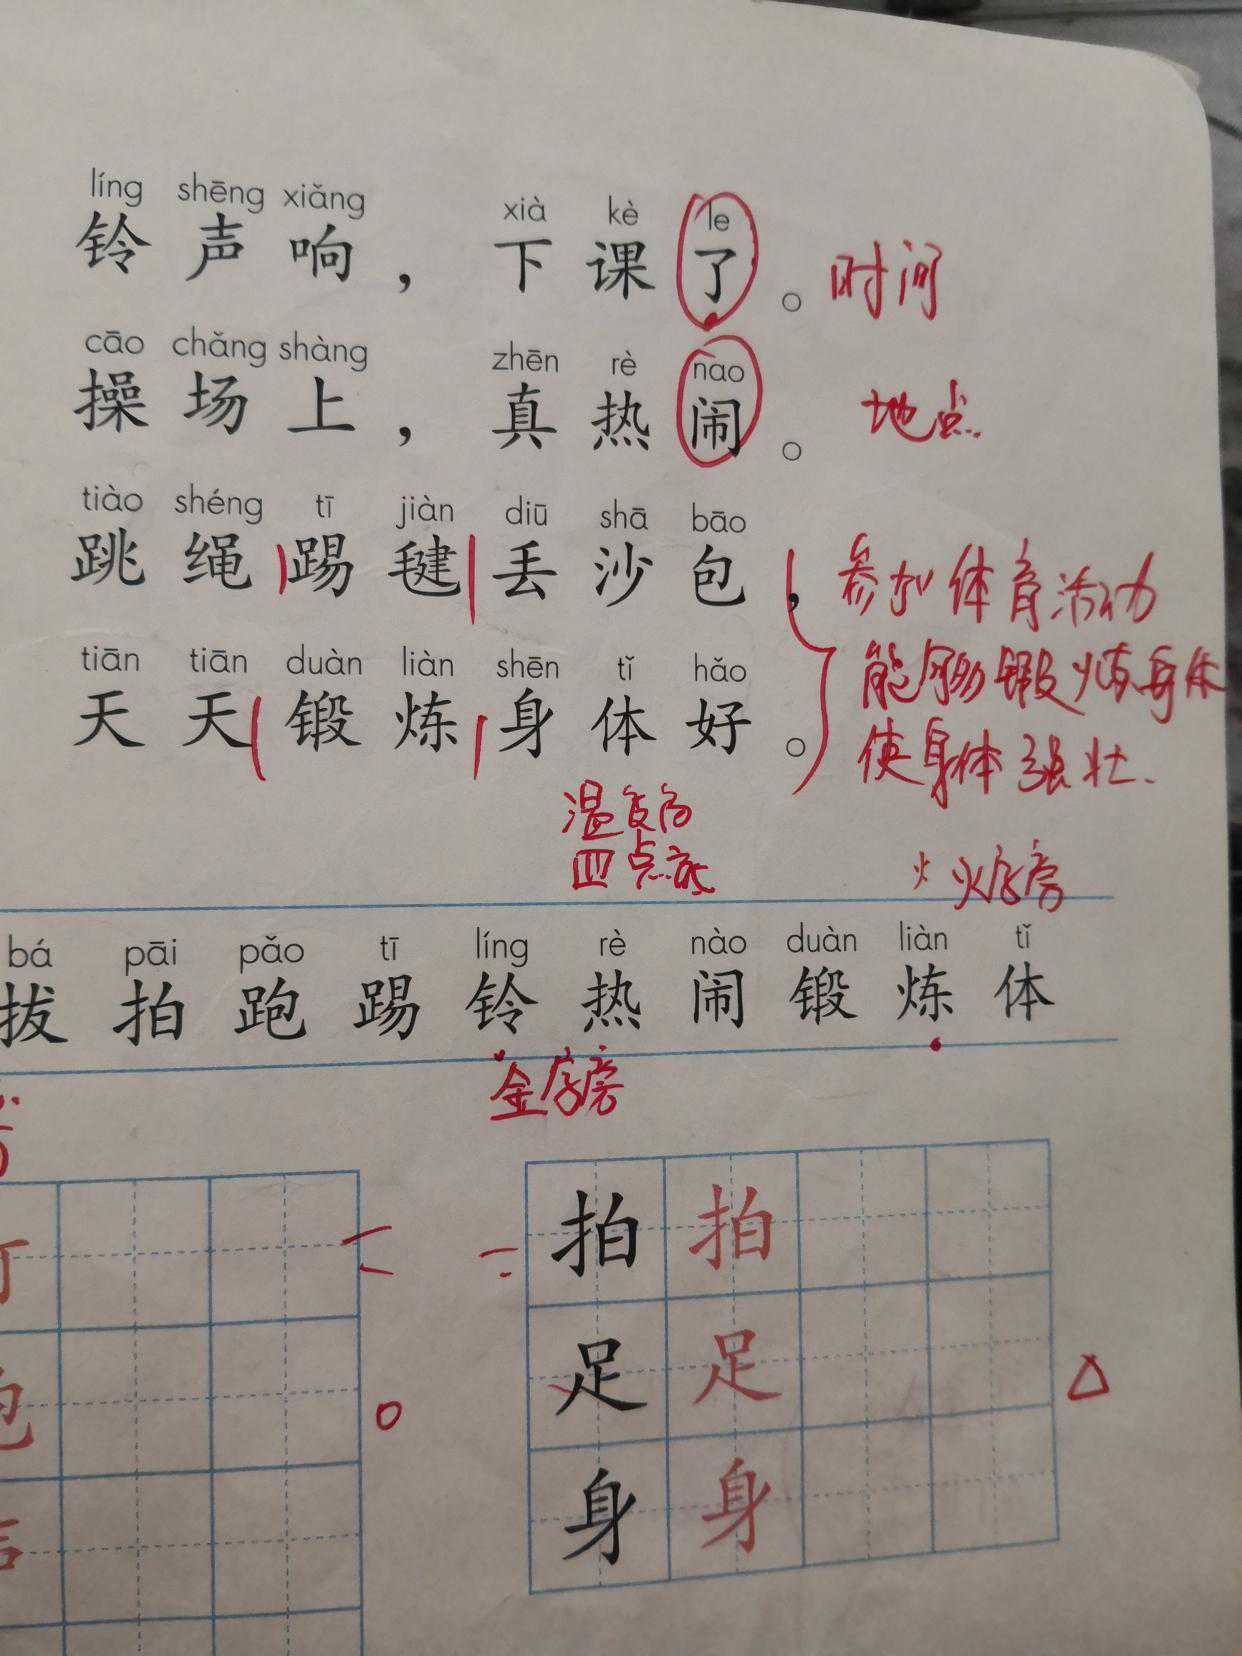 líng shēng xiǎng xià kè le
铃声响，下课了。时间
cāo chǎng shàng zhēn rè nao
操场上，真热闹。地点
tiào shéng tī jiàn diū shā bāo
跳绳踢毽丢沙包，参加体育活动
tiān tiān duàn liàn shēn tǐ hǎo
能够帮助锻炼身体
天天锻炼身体好。使身体强壮.
四点底
火字旁
bá pāi pǎo tī líng rè nào duàn liàn tǐ
拔拍跑踢铃热闹锻炼体
金字旁
拍拍
足足
身身